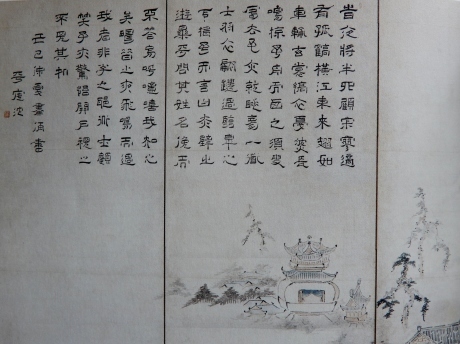 旹夜將半四顧寂寥適
有孤鶴橫江東來翅如
車輪玄裳縞衣戛然長
鳴掠予舟而西也須臾
客去予亦就睡夢一道
士羽衣翩躚過臨皋之
下揖予而言曰赤壁之
遊樂乎問其姓名俛而
不答嗚呼噫嘻我知之
矣疇昔之夜飛鳴而過
我者非子也耶道士顧
笑予亦驚寤開戶視之
不見其處